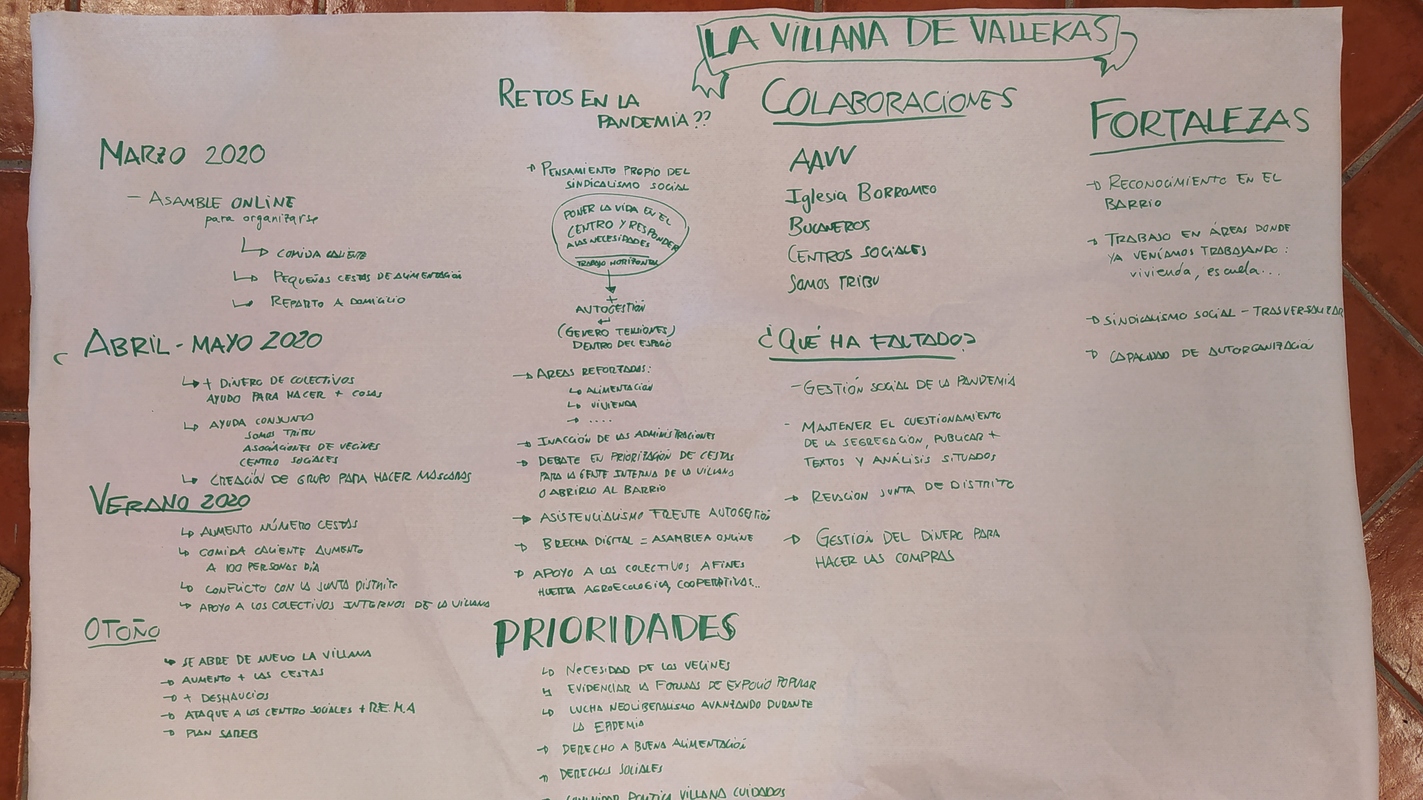 LA VILLANA DE VALLEKAS
MARZO 2020
- ASAMBLE ONLINE
para organizarse
↳ COMIDA CALIENTE
↳ PEQUEÑAS CESTAS DE ALIMENTACIÓN
↳ REPARTO A DOMICILIO
ABRIL - MAYO 2020
↳ + DINERO DE COLECTIVOS
AYUDO PARA HACER + COSAS
↳ AYUDA CONJUNTA
SOMOS TRIBU
ASOCIACIONES DE VECINES
CENTRO SOCIALES
↳ CREACIÓN DE GRUPO PARA HACER MÁSCARAS
VERANO 2020
↳ AUMENTO NÚMERO CESTAS
↳ COMIDA CALIENTE AUMENTO
A 100 PERSONAS DÍA
↳ CONFLICTO CON LA JUNTA DISTRITO
↳ APOYO A LOS COLECTIVOS INTERNOS DE LA VILLANA
OTOÑO
→ SE ABRE DE NUEVO LA VILLANA
→ AUMENTO + LAS CESTAS
→ + DESHAUCIOS
→ ATAQUE A LOS CENTRO SOCIALES + R.E.M.A
→ PLAN SAREB
RETOS EN LA
PANDEMIA??
→ PENSAMIENTO PROPIO DEL
SINDICALISMO SOCIAL
PONER LA VIDA EN EL
CENTRO Y RESPONDER
A LAS NECESIDADES
TRABAJO HORIZONTAL
+
AUTOGESTIÓN
(GENERO TENSIONES)
DENTRO DEL ESPACIO
→ AREAS REFORTADAS:
↳ ALIMENTACIÓN
↳ VIVIENDA
→ ....
→ INACCIÓN DE LAS ADMINISTRACIONES
→ DEBATE EN PRIORIZACIÓN DE CESTAS
PARA LA GENTE INTERNA DE LA VILLANA
O ABRIRLO AL BARRIO
→ ASISTENCIALISMO FRENTE AUTOGESTIÓN
→ BRECHA DIGITAL = ASAMBLEA ONLINE
→ APOYO A LOS COLECTIVOS AFINES
HUERTA AGROECOLOGICA, COOPERATIVAS...
PRIORIDADES
↳ NECESIDAD DE LOS VECINES
↳ EVIDENCIAR LA FORMAS DE EXPOLIO POPULAR
↳ LUCHA NEOLIBERALISMO AVANZANDO DURANTE
LA EPIDEMIA
→ DERECHO A BUENA ALIMENTACIÓN
→ DERECHOS SOCIALES
POLÍTICA VILLANA CUIDADOS
COLABORACIONES
AAVV
Iglesia BORROMEO
BUCANEROS
CENTROS SOCIALES
SOMOS TRIBU
¿QUÉ HA FALTADO?
- GESTIÓN SOCIAL DE LA PANDEMIA
- MANTENER EL CUESTIONAMIENTO
DE LA SEGREGACIÓN, PUBLICAR +
TEXTOS Y ANÁLISIS SITUADOS
→ RELACION JUNTA DE DISTRITO
→ GESTIÓN DEL DINERO PARA
HACER LAS COMPRAS
FORTALEZAS
→ RECONOCIMIENTO EN EL
BARRIO
→ TRABAJO EN ÁREAS DONDE
YA VENÍAMOS TRABAJANDO:
vivienda, escuela...
→ SINDICALISMO SOCIAL - TRASVERSALIZAR
→ CAPACIDAD DE AUTORGANIZACIÓN